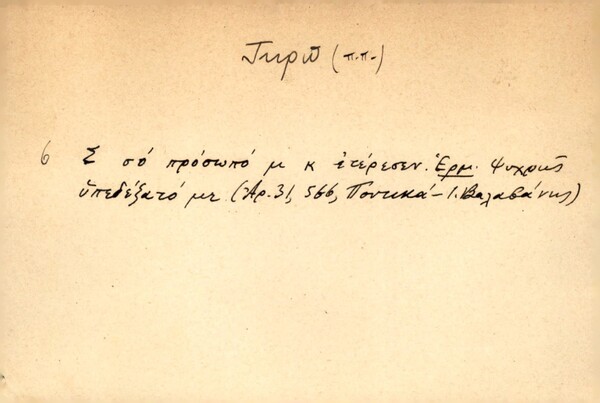 Τηρῶ (π.π.)
6 Σ σό πρόσωπό μ κ ἐτέρεσεν. Ἑρμ. Ψυχρῶς
ὑπεδέξατό με (Ἀρ. 31, 566, Ποντικά - Ι. Βαλαβάνης)